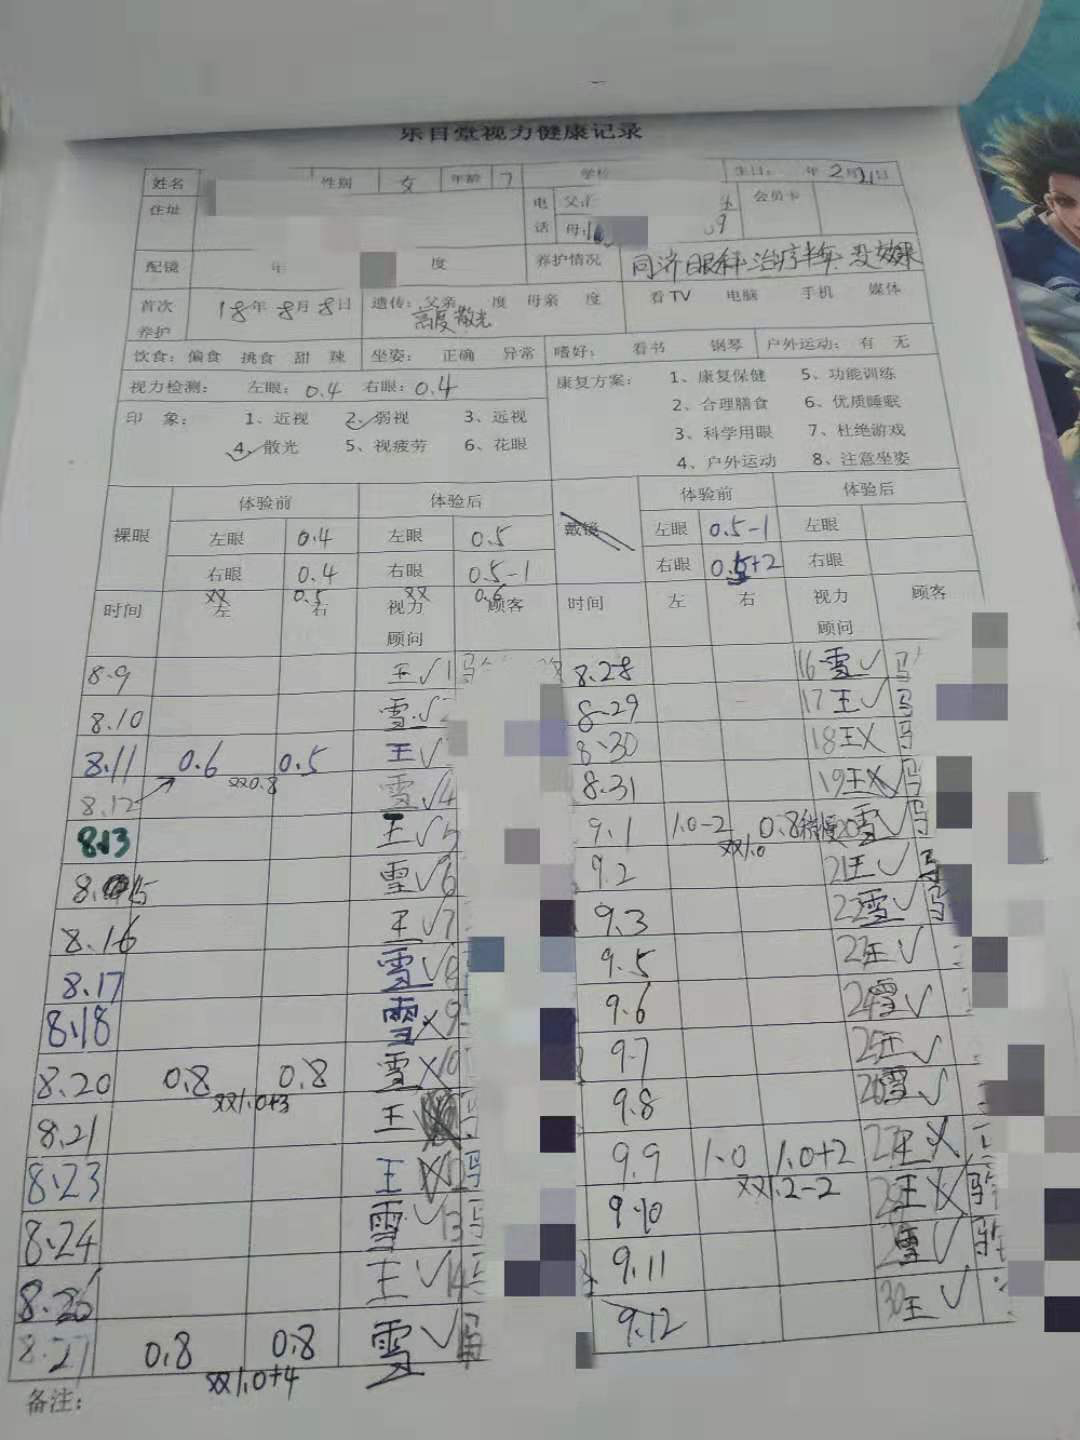 乐目堂视力健康记录
姓名 性别 女 年龄 7 学校 生日： 年 2月21日
住址 电话 父： 会员卡
母： 9
配镜 年 度 养护情况 同济眼科治疗半年没效果
首次养护 18年8月8日 遗传：父亲 度 母亲 度 看TV 电脑 手机 媒体
高度散光
饮食：偏食 挑食 甜 辣 坐姿： 正确 异常 嗜好： 看书 钢琴 户外运动：有 无
视力检测： 左眼：0.4 右眼：0.4 康复方案： 1、康复保健 5、功能训练
印 象： 1、近视 2、弱视 3、远视 2、合理膳食 6、优质睡眠
4、散光 5、视疲劳 6、花眼 3、科学用眼 7、杜绝游戏
4、户外运动 8、注意坐姿
裸眼 体验前 体验后 戴镜 体验前 体验后
左眼 0.4 左眼 0.5 左眼 0.5-1 左眼
右眼 0.4 右眼 0.5-1 右眼 0.5+2 右眼
双 0.5 双 0.6
时间 左 右 视力顾问 顾客 时间 左 右 视力顾问 顾客
8.9 王√1 马 8.28 16雪√ 马
8.10 雪√2 8.29 17王√ 马
8.11 0.6 0.5 王√ 8.30 18王X 马
双0.8
8.12 雪√4 8.31 19王X 马
8.13 王√5 9.1 1.0-2 0.8稍慢 20雪√ 马
双1.0
8.15 雪√6 9.2 21王√ 马
8.16 王√7 9.3 22雪√ 马
8.17 雪√8 9.5 23王√
8.18 雪X9 9.6 24雪√
8.20 0.8 0.8 雪X10 9.7 25王√
双1.0+3
8.21 王 9.8 26雪√
8.23 王X12 马 9.9 1.0 1.0+2 27王X
双1.2-2
8.24 雪√13 马 9.10 28王X
8.26 王√14 9.11 雪√
8.27 0.8 0.8 雪√ 9.12 30王√
双1.0+4
备注：